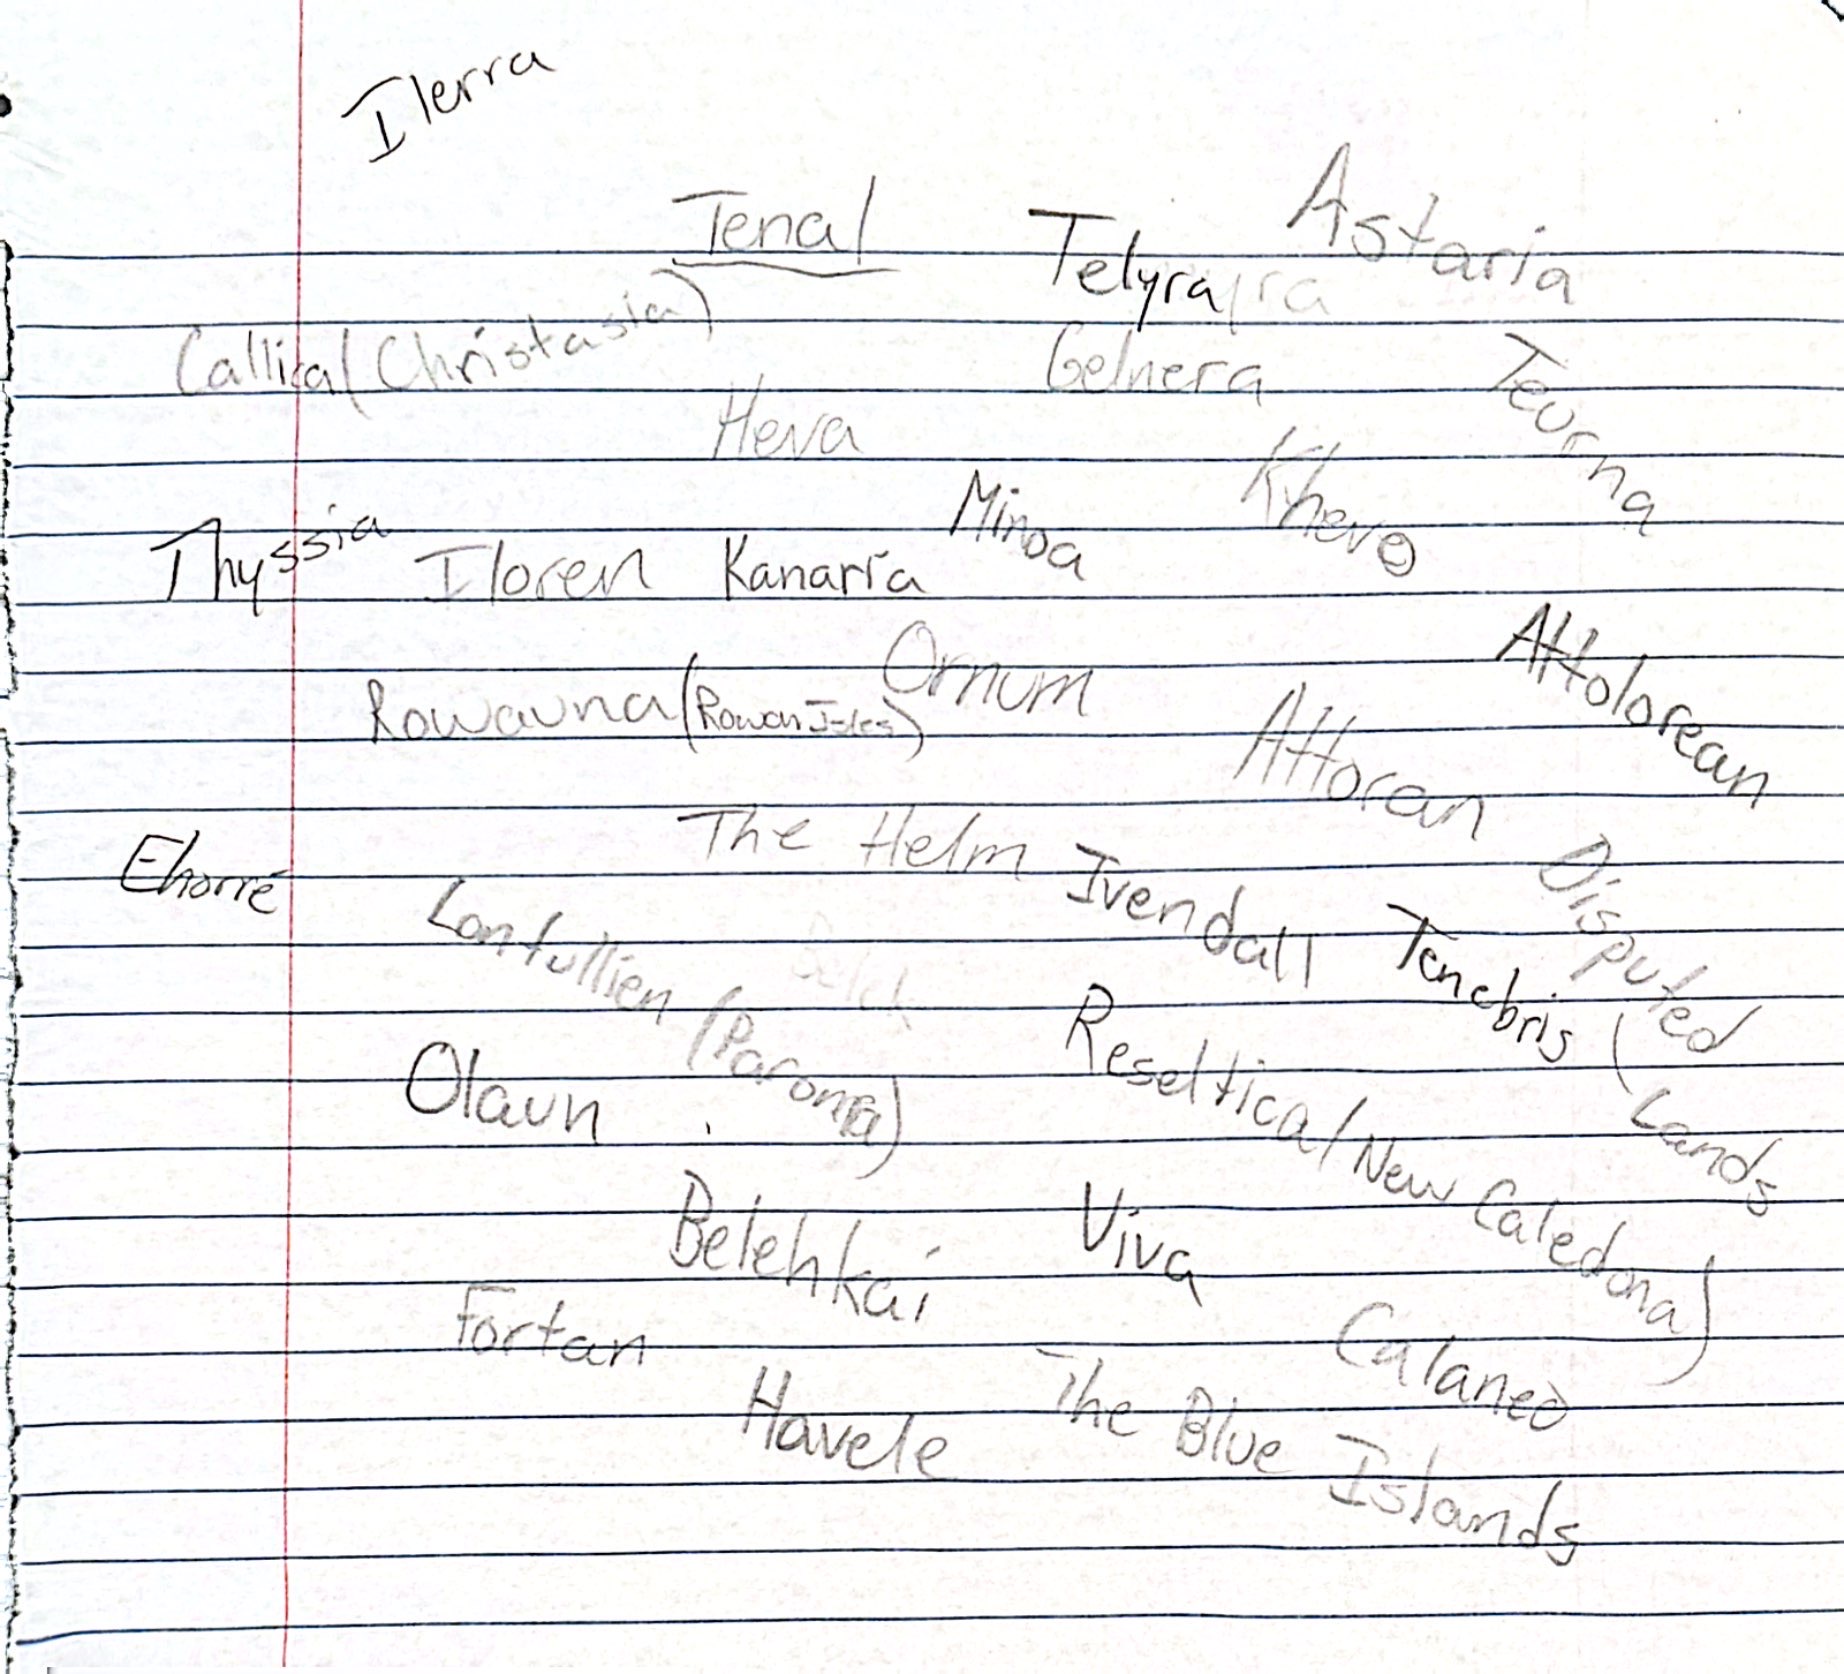 Ilerra
Tenal
Astaria
Telyra
Callica (Christasia)
Gelnera
Teurna
Heva
Khevo
Minoa
Thyssia
Iloren
Kanaria
Attolorean
Ornum
Rowauna (Rowan Isles)
Attoran
The Helm
Ehorré
Ivendall
Disputed
Lands
Lontullien (Paroma)
Tenebris
Reseltica (New Caledona)
Olaun
Belehkai
Viva
Fortan
Calaneo
Havele
The Blue Islands